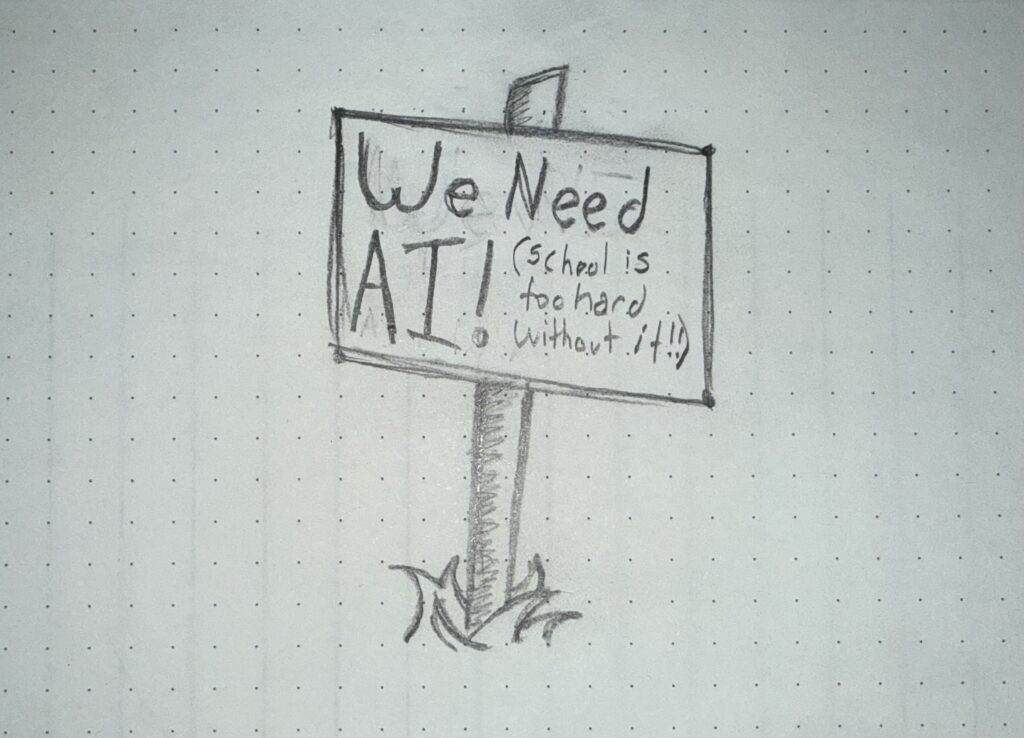 We Need
AI!
(school is
too hard
without it!!)